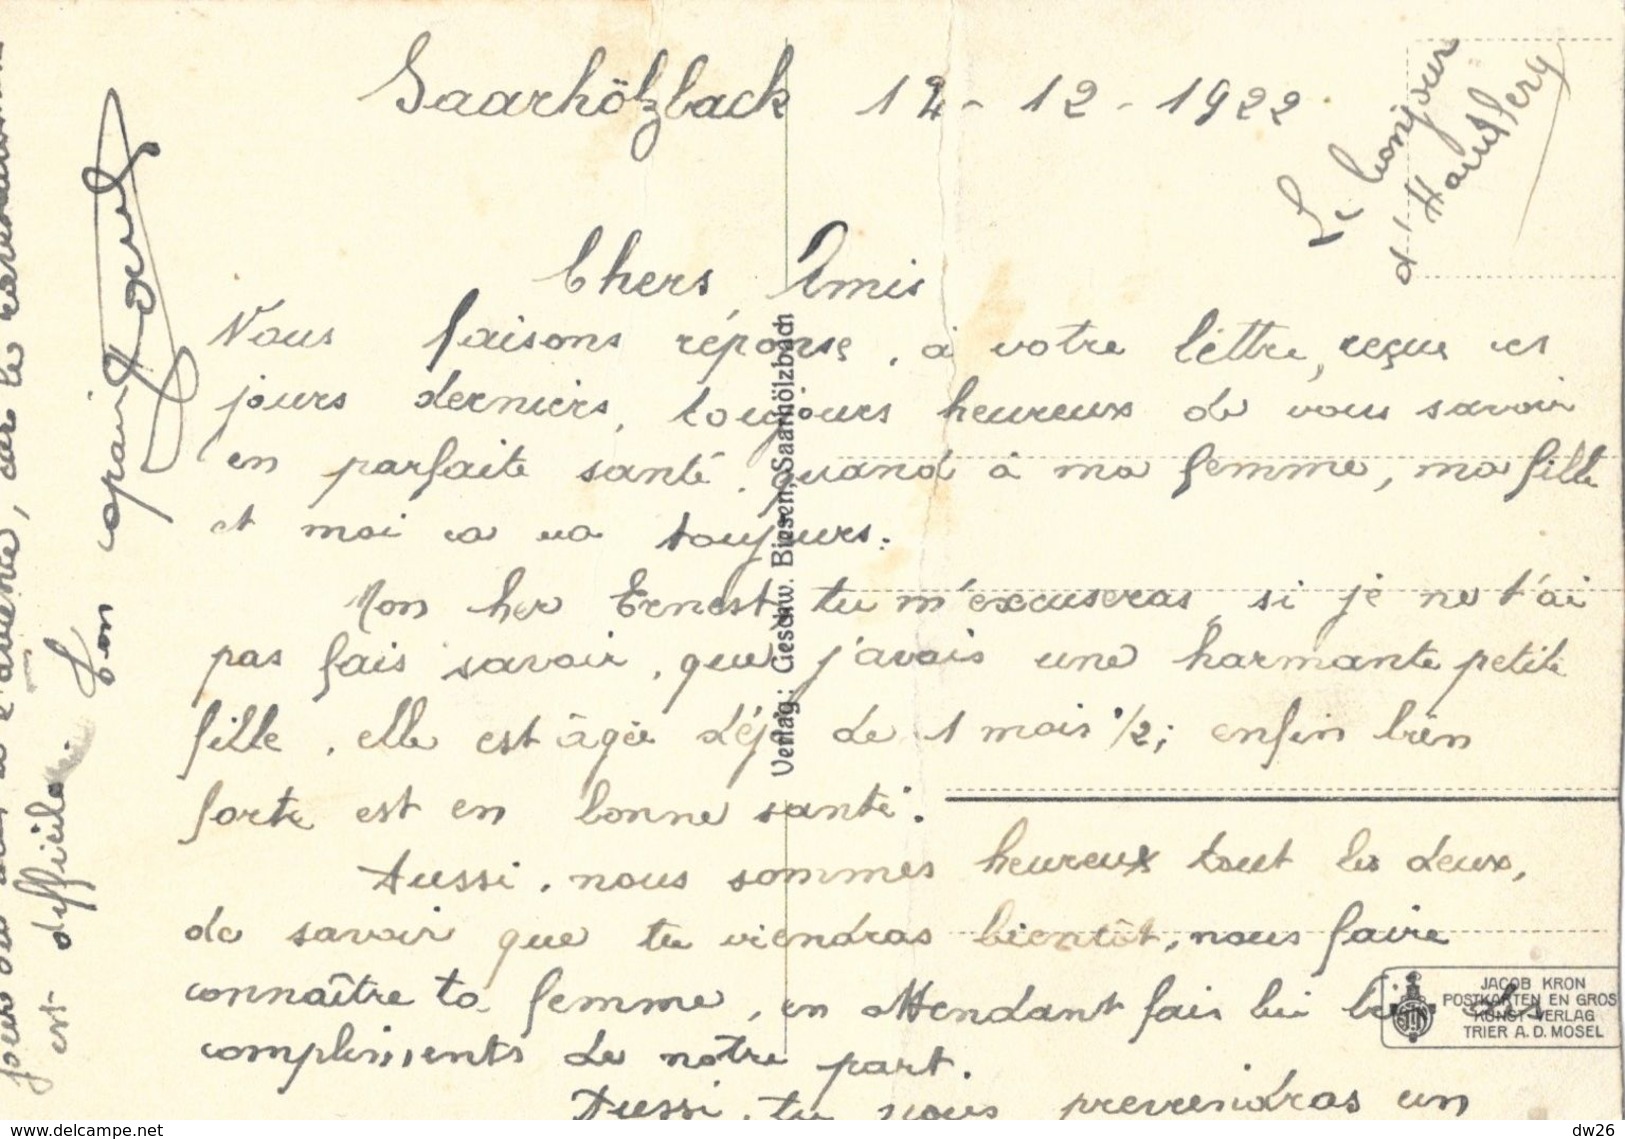 Saarhölzback 12-12-1922
Le bonjour
d'
Chers Amis
Nous faisons réponse, à votre lettre, reçue ces
jours derniers, toujours heureux de vous savoir
en parfaite santé. quand à ma femme, ma fille
et moi ca va toujours.
Mon her Ernest tu m'excuseras, si je ne t'ai
pas fais savoir, que j'avais une harmante petite
fille, elle est âgée déjà de 1 mois 1/2; enfin bien
forte est en bonne santé.
Aussi, nous sommes heureux tout les deux,
de savoir que tu viendras bientôt, nous faire
connaître ta femme, en attendant fais lui
compliments de notre part.
Aussi, tu nous prevriendras un
jour ou
l'avance, car le
est difficile. Ton copain
Verlag: Geschw. Biesen, Saarhölzbach
JACOB KRON
POSTKARTEN EN GROS
KUNST-VERLAG
TRIER A. D. MOSEL
www.delcampe.net
dw26